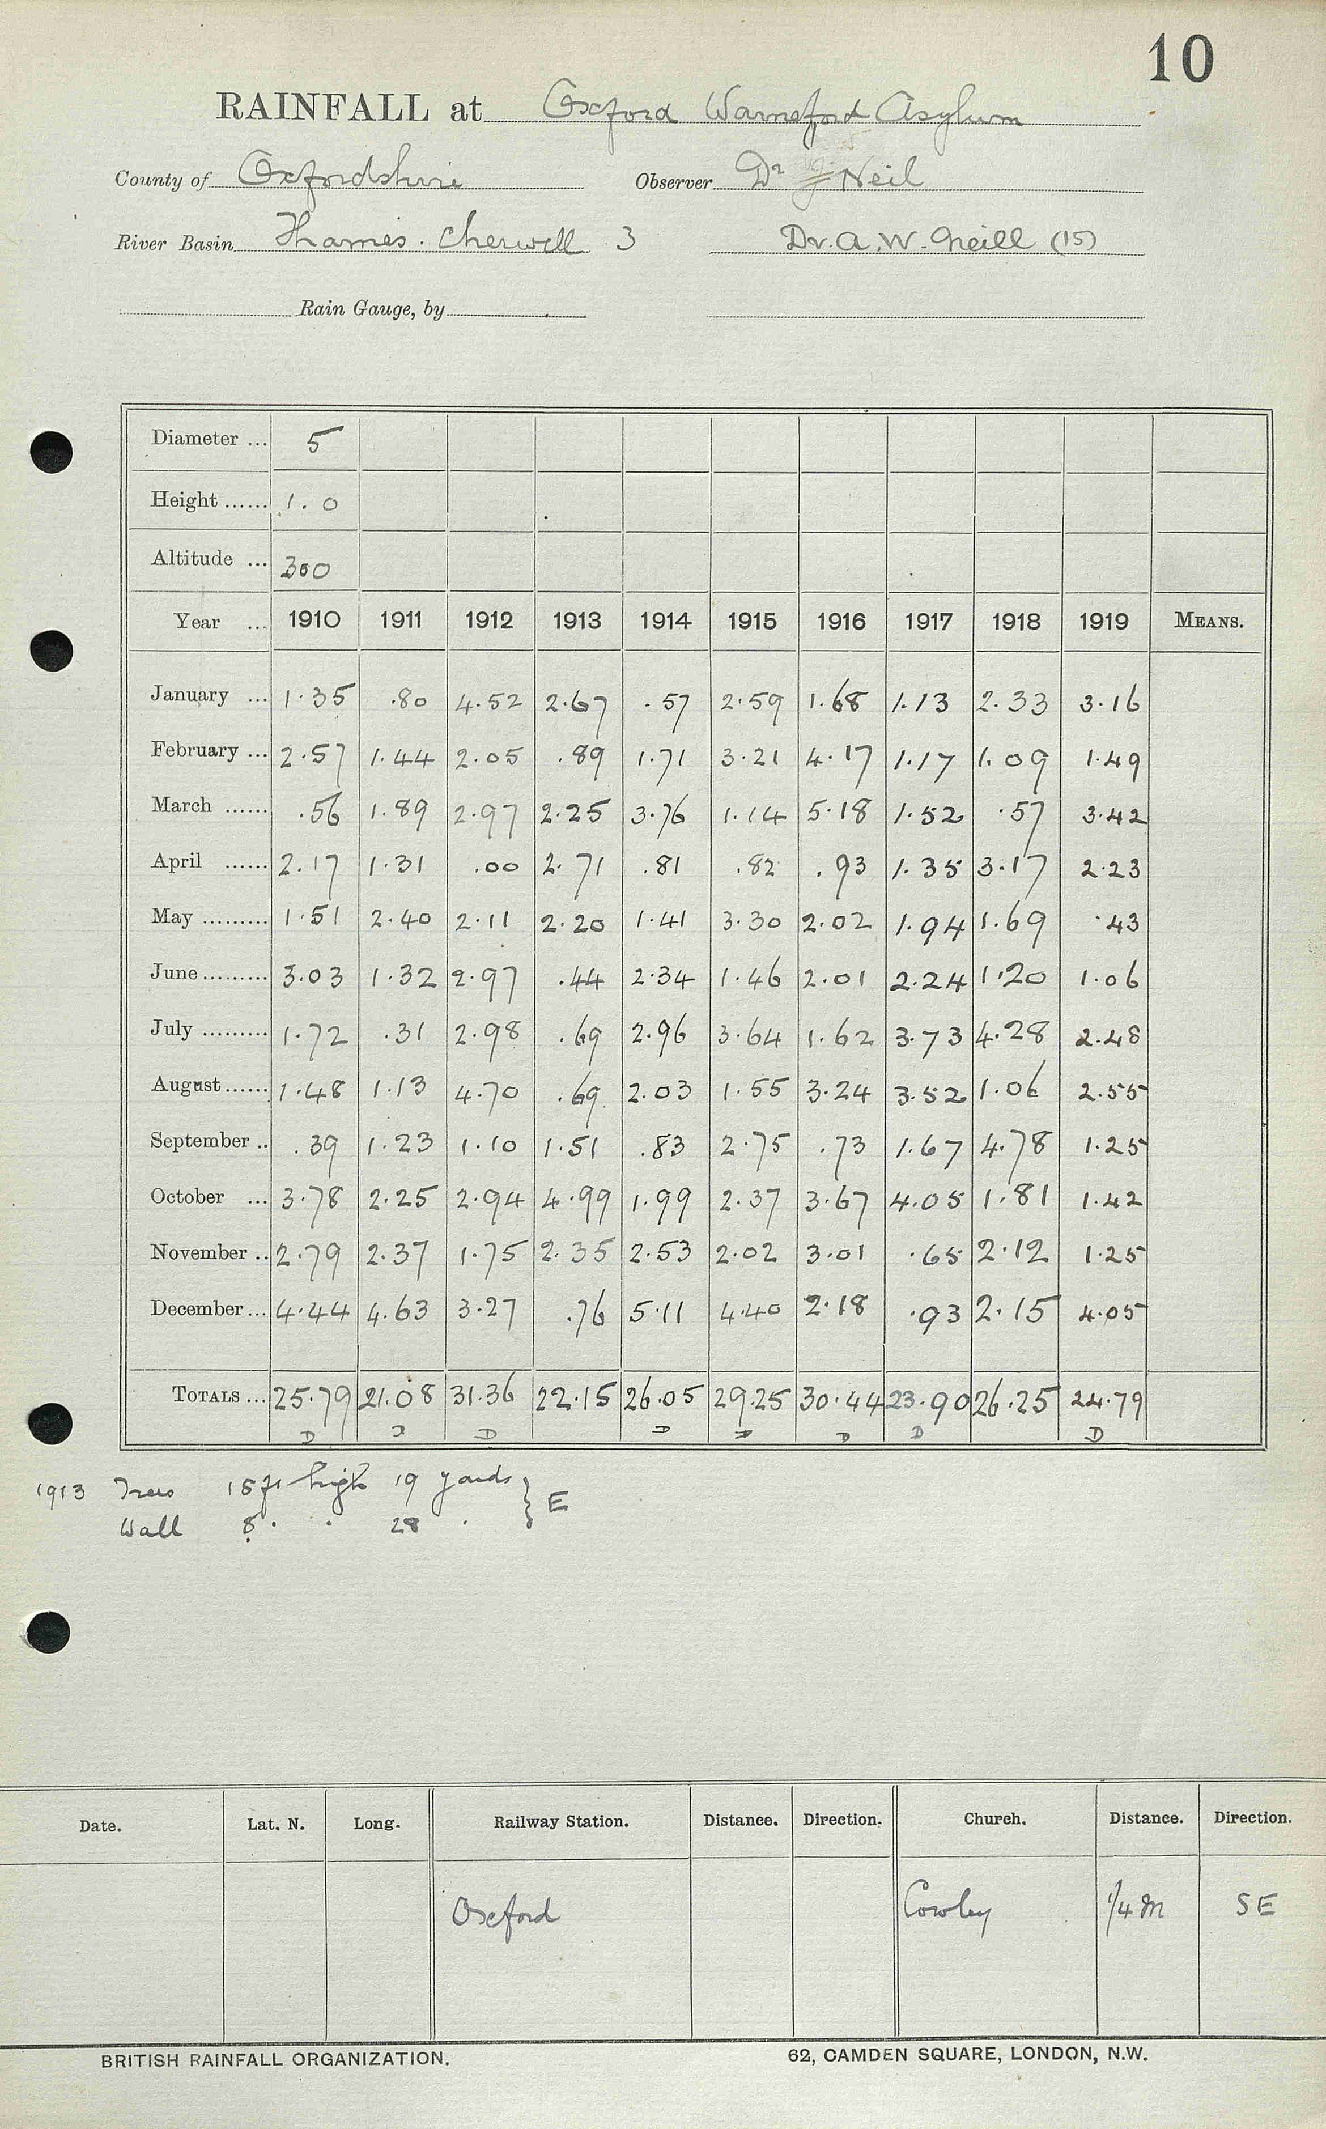 10
RAINFALL at Oxford Warneford Asylum
County of Oxfordshire Observer Dr Neil
River Basin Thames. Cherwell 3 Dr. A. W. Neill (15)
Rain Gauge, by
Diameter ... 5
Height ...... 1.0
Altitude ... 300
Year ... 1910 1911 1912 1913 1914 1915 1916 1917 1918 1919 MEANS.
January ... 1.35 .80 4.52 2.67 .57 2.59 1.68 1.13 2.33 3.16
February ... 2.57 1.44 2.05 .89 1.71 3.21 4.17 1.17 1.09 1.49
March ...... .56 1.89 2.97 2.25 3.76 1.14 5.18 1.52 .57 3.42
April ...... 2.17 1.31 .00 2.71 .81 .82 .93 1.35 3.17 2.23
May ......... 1.51 2.40 2.11 2.20 1.41 3.30 2.02 1.94 1.69 .43
June ......... 3.03 1.32 2.97 .44 2.34 1.46 2.01 2.24 1.20 1.06
July ......... 1.72 .31 2.98 .69 2.96 3.64 1.62 3.73 4.28 2.48
August ...... 1.48 1.13 4.70 .69 2.03 1.55 3.24 3.52 1.06 2.55
September .. .39 1.23 1.10 1.51 .83 2.75 .73 1.67 4.78 1.25
October ... 3.78 2.25 2.94 4.99 1.99 2.37 3.67 4.05 1.81 1.42
November .. 2.79 2.37 1.75 2.35 2.53 2.02 3.01 .65 2.12 1.25
December ... 4.44 4.63 3.27 .76 5.11 4.40 2.18 .93 2.15 4.05
TOTALS ... 25.79 21.08 31.36 22.15 26.05 29.25 30.44 23.90 26.25 24.79
D D D D D D D D
1913 Trees 15 ft high 19 yards } E
Wall 8 . . 28 .
Date. Lat. N. Long. Railway Station. Distance. Direction. Church. Distance. Direction.
Oxford Cowley 1/4 M SE
BRITISH RAINFALL ORGANIZATION. 62, CAMDEN SQUARE, LONDON, N.W.